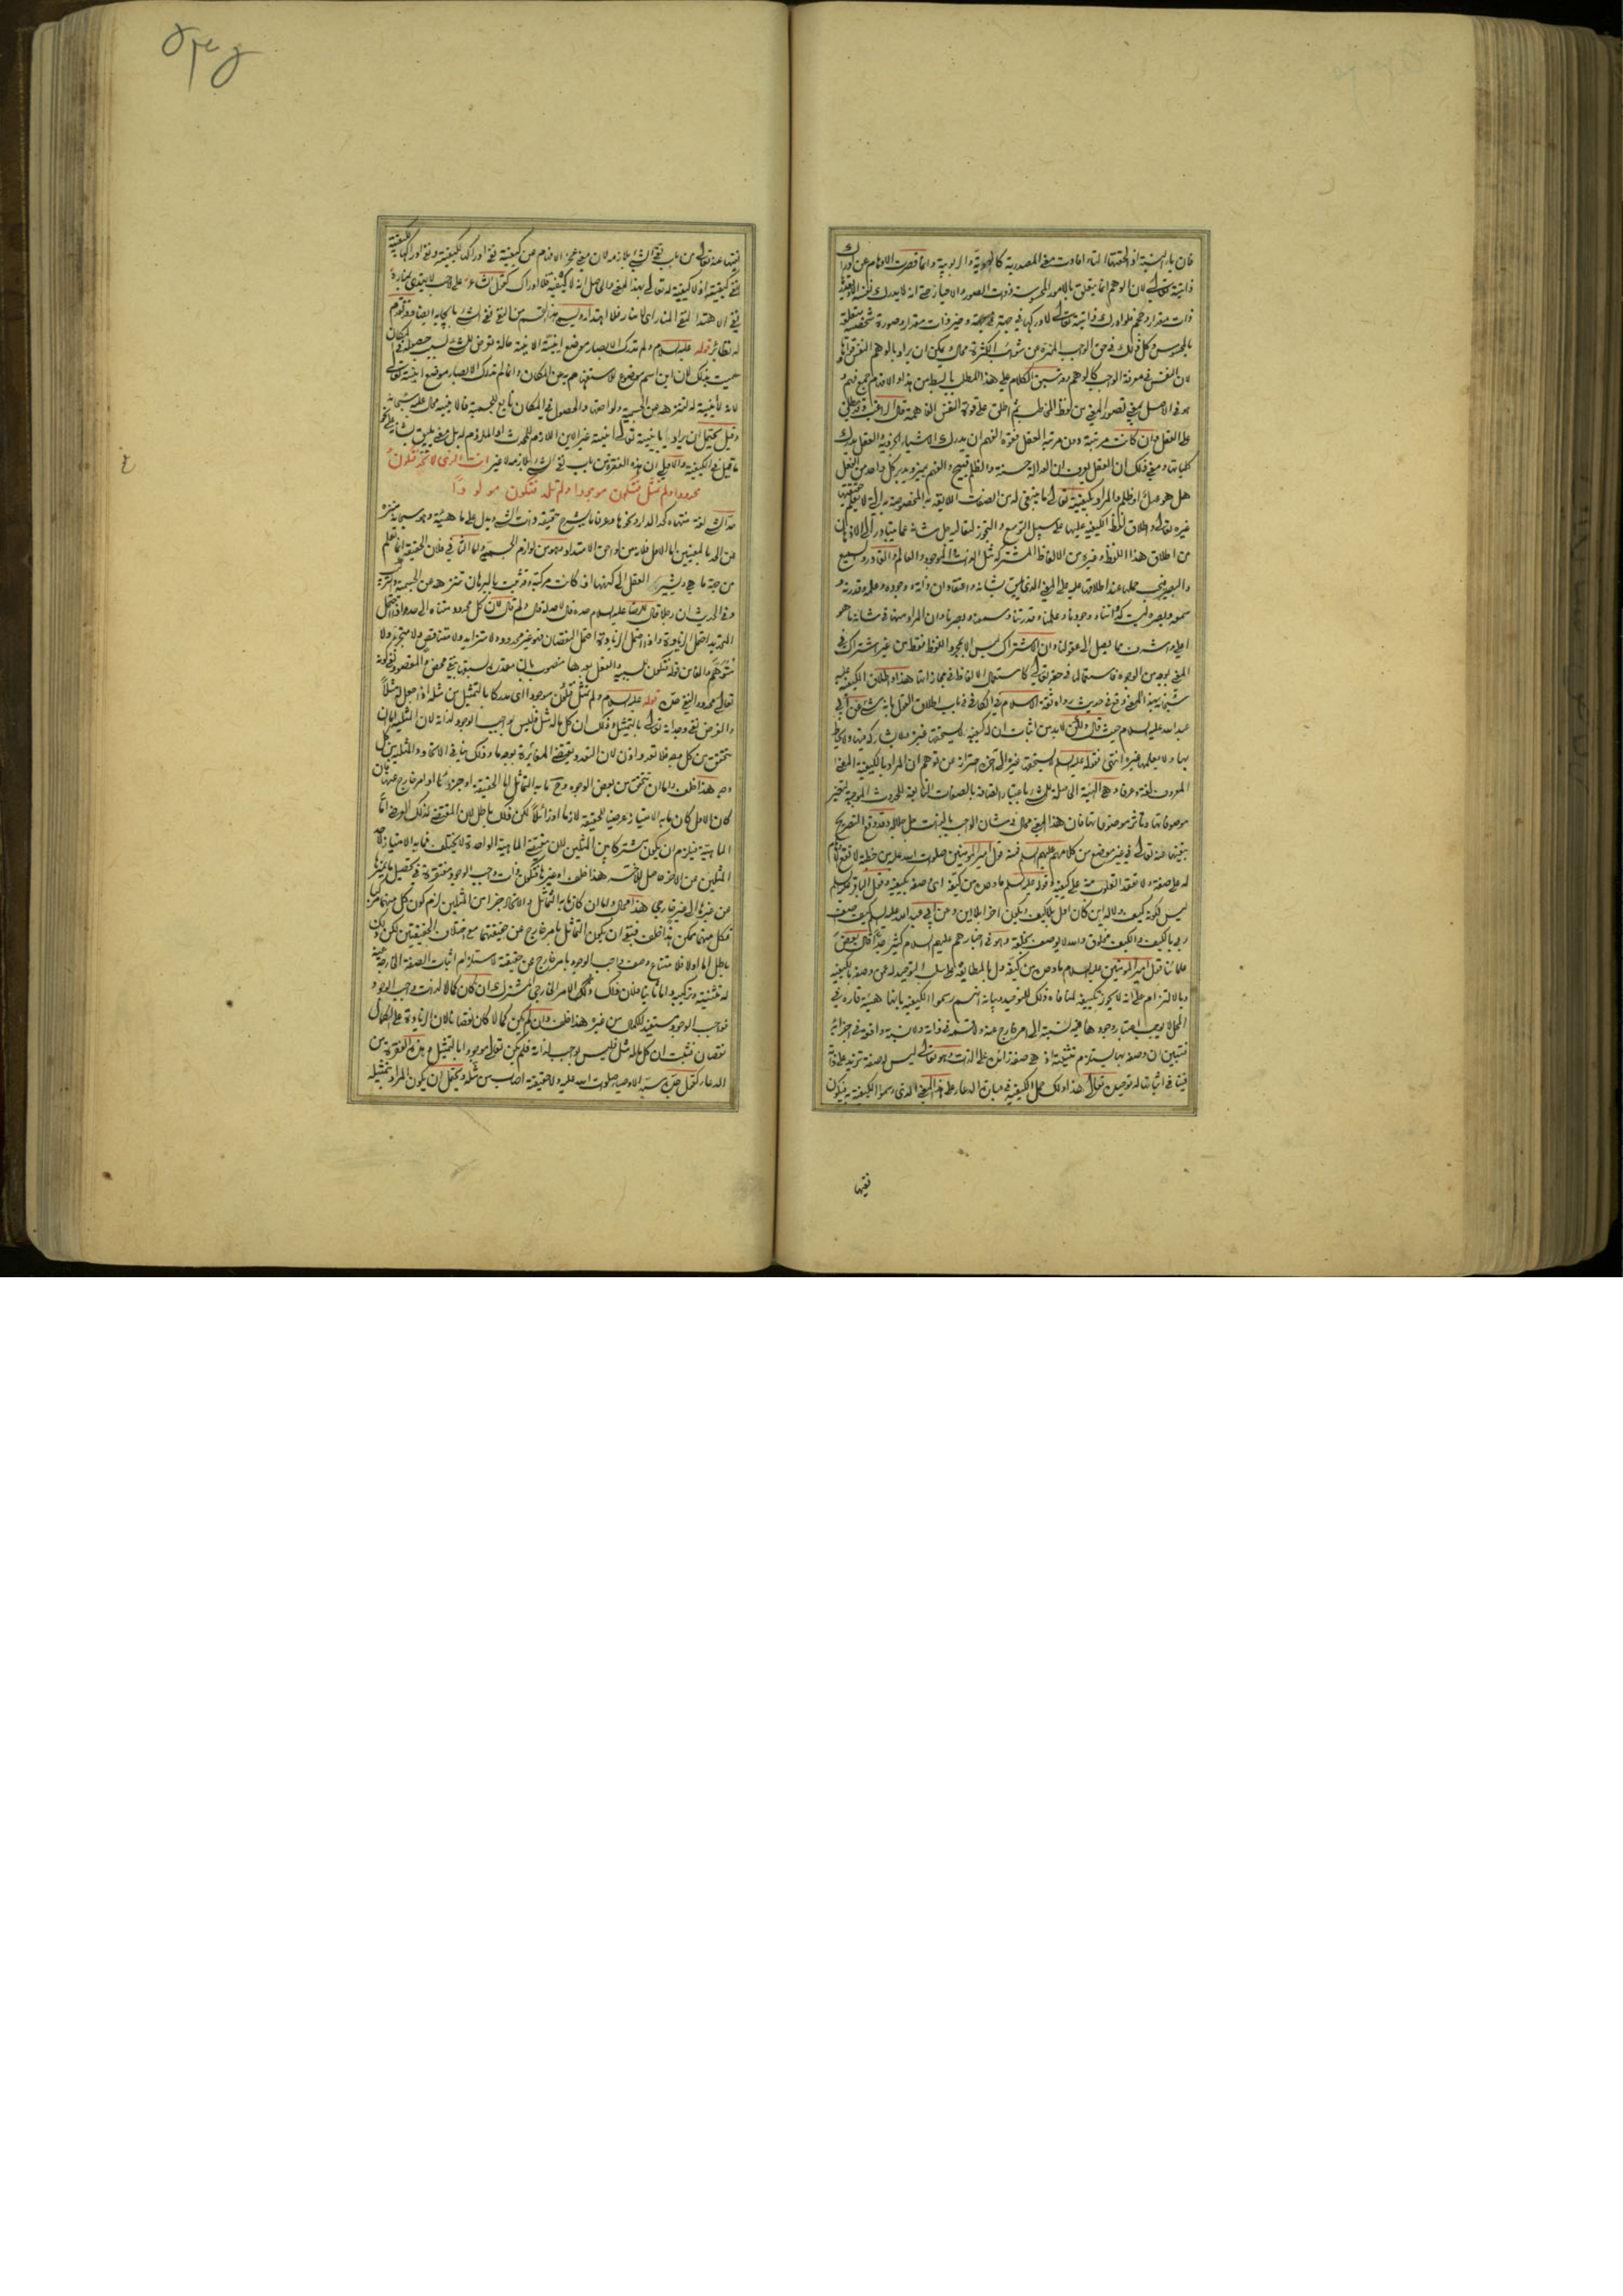 فان ياء النسبة اذا لحقتها التاء افادت معنى المصدرية كالالوهية والربوبية وانما قصرت الاوهام عن ادراك
ذاتيته تعالى لان الوهم انما يتعلق بالامور المحسوسة ذوات الصور والاحياز حتى انه لا يدرك نفسه الا
ذات مقدار وحجم فلو ادرك ذاتيته تعالى لادركها في جهة وحيز ذات مقدار وصورة شخصية متعلقة
بالمحسوس وكل ذلك في حق الواجب المنزه عن شوائب الكثرة محال ويمكن ان يراد بالوهم النفس
لان النفس في معرفة الواجب كالوهم وقد سبق الكلام على هذا المطلب بابسط من هذا والافهام جمع فهم و
هو في الاصل تصور المعنى من لفظ المخاطب ثم اطلق على قوة النفس الفاهمة قال الراغب وقد يطلق
على العقل وان كانت مرتبته دون مرتبة العقل فقوة الفهم ان يدرك الاشياء الجزئية والعقل يدرك
كلياتها ومعنى ذلك ان العقل يعرف ان العدالة حسنة والظلم قبيح والفهم يميز ويدبر كل واحد من الفعل
هل هو عدل او ظلم والمراد بكيفيته تعالى ما ينبغي له من الصفات اللايقة به المخصوصة به التي لا يعلم حقيقتها
غيره تعالى واطلاق لفظ الكيفية عليها على سبيل التوسع والتجوز لتعاليه جل شانه عما يتبادر الى الاذهان
من اطلاق هذا اللفظ وغيره من الالفاظ المشتركة مثل الذات والموجود والعالم والقادر والسميع
والبصير فيجب حملها عند اطلاقها عليه على المعنى الذي يليق بشانه واعتقاد ان ذاته ووجوده وعلمه وقدرته و
سمعه وبصره ليست كذاتنا ووجودنا وعلمنا وقدرتنا وسمعنا وبصرنا وان المراد منها في شانه ما هو
اعلى واشرف مما يصل الى عقولنا وان الاشتراك ليس الا بمجرد اللفظ فقط من غير اشتراك في
المعنى بوجه من الوجوه فاستعمالها في حقه تعالى كاستعمال الالفاظ في مجازاتها هذا واطلاق الكيفية عليه
سبحانه بهذا المعنى وقع في حديث رواه ثقة الاسلام في الكافي في باب اطلاق القول بانه شيء عن ابي
عبد الله عليه السلام حيث قال ولكن لا بد من اثبات ان له كيفية لا يستحقها غيره ولا يشارك فيها ولا يحاط
بها ولا يعلمها غيره انتهى فقوله عليه السلم لا يستحقها غيره الى آخره احتراز عن توهم ان المراد بالكيفية المعنى
المعروف لغة وعرفا وهي الهيئة الحاصلة للشيء باعتبار اتصافه بالصفات التابعة للحدوث الموجبة لتغير
موصوفاتها وتاثر موصوفاتها فان هذا المعنى محال في شان الواجب بالذات جل جلاله وقد وقع التصريح
بنفيها عنه تعالى في غير موضع من كلامهم عليهم السلم فمنه قول امير المؤمنين صلوات الله عليه من خطبة لا تقع الاوهام
له على صفة ولا تعقد القلوب منه على كيفية وقوله عليه السلم ما وحده من كيفه اي وصفه بكيفية وقول الباقر عليه السلم
ليس لكونه كيف ولا له اين كان اول بلا كيف ويكون آخرا بلا اين وعن ابي عبد الله عليه السلم كيف اصف
ربي بالكيف والكيف مخلوق والله لا يوصف بخلقه وهو في اخبارهم عليهم السلام كثير جدا قال بعض
علمائنا قول امير المؤمنين عليه السلام ما وحده من كيفه دل بالمطابقة على سلب التوحيد له عمن وصفه بالكيفية
وبالالتزام على انه لا يجوز تكييفه لمنافاة ذلك للتوحيد وبيانه انهم رسموا الكيفية بانها هيئة قارة في
المحل لا يوجب اعتبار وجودها فيه نسبة الى امر خارج عنه ولا قسمة في ذاته ولا نسبة واقعة في اجزائه
فتبين ان وصفه بها يستلزم تثنيته اذ هي صفة زائدة على الذات وهو تعالى ليس له صفة تزيد على ذاته
فينافي اثباتها له توحيده تعالى هذا ولك حمل الكيفية في عبارة الدعاء على هذا المعنى الذي رسموا الكيفية به فيكون
نفيها
نفيها عنه تعالى من باب نفي الشيء بلازمه لان معنى عجز الافهام عن كيفيته نفي ادراكها لكيفيته ونفي ادراكها لكيفيته
نفي كيفيته اذ لا كيفية له تعالى بهذا المعنى والحاصل انه لا كيفية فلا ادراك كقول الشاعر على لاحب لا يهتدى بمناره
نفى الاهتداء لنفي المنار اي لا منار فلا اهتداء ويسمى هذا القسم من النفي نفي الشيء بايجابه ايضا وقد تقدم
له نظائر قوله عليه السلام ولم تدرك الابصار موضع اينيته الاينية حالة تعرض للشيء بسبب حصوله في المكان
سميت بذلك لان اين اسم موضوع للاستفهام به عن المكان وانما لم تدرك الابصار موضع اينيته تعالى
لانه لا اينية له لتنزهه عن الجسمية ولواحقها والحصول في المكان تابع للجسمية فالاينية محال عليه سبحانه
وقيل يحتمل ان يراد باينيته تعالى اينية غير الاين اللازم للمحدث او الملزوم له بل معنى يليق بشانه على نحو
ما قيل في الكيفية والاولى ان هذه الفقرة من باب نفي الشيء بلازمه لا غير انت الذي لا تحد فتكون
محدودا ولم تمثل فتكون موجودا ولم تلد فتكون مولودا
حد الشيء لغة منتهاه كحد الدار ونحوها وعرفا ما يشرح حقيقة ذات الشيء ويدل على ماهيته وهو سبحانه منزه
عن الحد بالمعنيين اما الاول فلانه من لواحق الامتداد وهو من لوازم الجسمية واما الثاني فلان الحقيقة انما تعلم
من جهة ما هي ويشير العقل الى كنهها اذا كانت مركبة وقد ثبت بالبرهان تنزهه عن الجسمية والتركيب
وفي الحديث ان رجلا قال للرضا عليه السلام حده قال لا حد له قال ولم قال لان كل محدود متناه الى حد واذا احتمل
التحديد احتمل الزيادة واذا احتمل الزيادة احتمل النقصان فهو غير محدود ولا متزايد ولا متناقص ولا متجزء ولا
متوهم والفاء من قوله فتكون للسببية والفعل بعدها منصوب بان مقدرة لسبقها بنفي محض والمقصود نفي كونه
تعالى محدودا لنفي حده قوله عليه السلام ولم تمثل فتكون موجودا اي مدركا بالتمثيل من مثله اذا جعل له مثلا
والغرض نفي وجدانه تعالى بالتمثيل وذلك ان كل ما له مثل فليس بواجب الوجود لذاته لان المثلية اما ان
تتحقق من كل وجه فلا تعدد اذن لان التعدد يقتضي المغايرة بوجه ما وذلك ينافي الاتحاد والمثلية من كل
وجه هذا خلف واما ان تتحقق من بعض الوجوه وحينئذ ما به التماثل اما الحقيقة او جزؤها او امر خارج عنها فان
كان الاول كان ما به الامتياز عرضيا للحقيقة لازما او زائلا لكن ذلك باطل لان المقتضي لذلك العرضي اما
الماهية فيلزم ان يكون مشتركا بين المثلين لان مقتضى الماهية الواحدة لا يختلف فما به الامتياز لاحد
المثلين عن الآخر حاصل للآخر هذا خلف او غيرها فتكون ذات واجب الوجود مفتقرة في تحصيل ما يميزها
عن غيرها الى غير خارجي هذا محال واما ان كان ما به التماثل والاتحاد جزءا من المثلين لزم كون كل منهما مركبا
فكل منهما ممكن هذا خلف فبقي ان يكون التماثل بامر خارج عن حقيقتهما مع اختلاف الحقيقتين لكن ذلك
باطل اما اولا فلامتناع وصف واجب الوجود بامر خارج عن حقيقته لاستلزام اثبات الصفة الخارجة عنه
له تثنيته وتركيبه واما ثانيا فلان ذلك الامر الخارجي المشترك ان كان كمالا لذات واجب الوجود
فواجب الوجود مستفيد للكمال من غيره هذا خلف وان لم يكن كمالا كان نقصانا لان الزيادة على الكمال
نقصان فثبت ان كل ما له مثل فليس بواجب لذاته فلم يكن تعالى موجودا بالتمثيل وهذه الفقرة من
الدعاء كقول جده سيد الاوصياء صلوات الله عليه ولا حقيقته اصاب من مثله ويحتمل ان يكون المراد بتمثيله